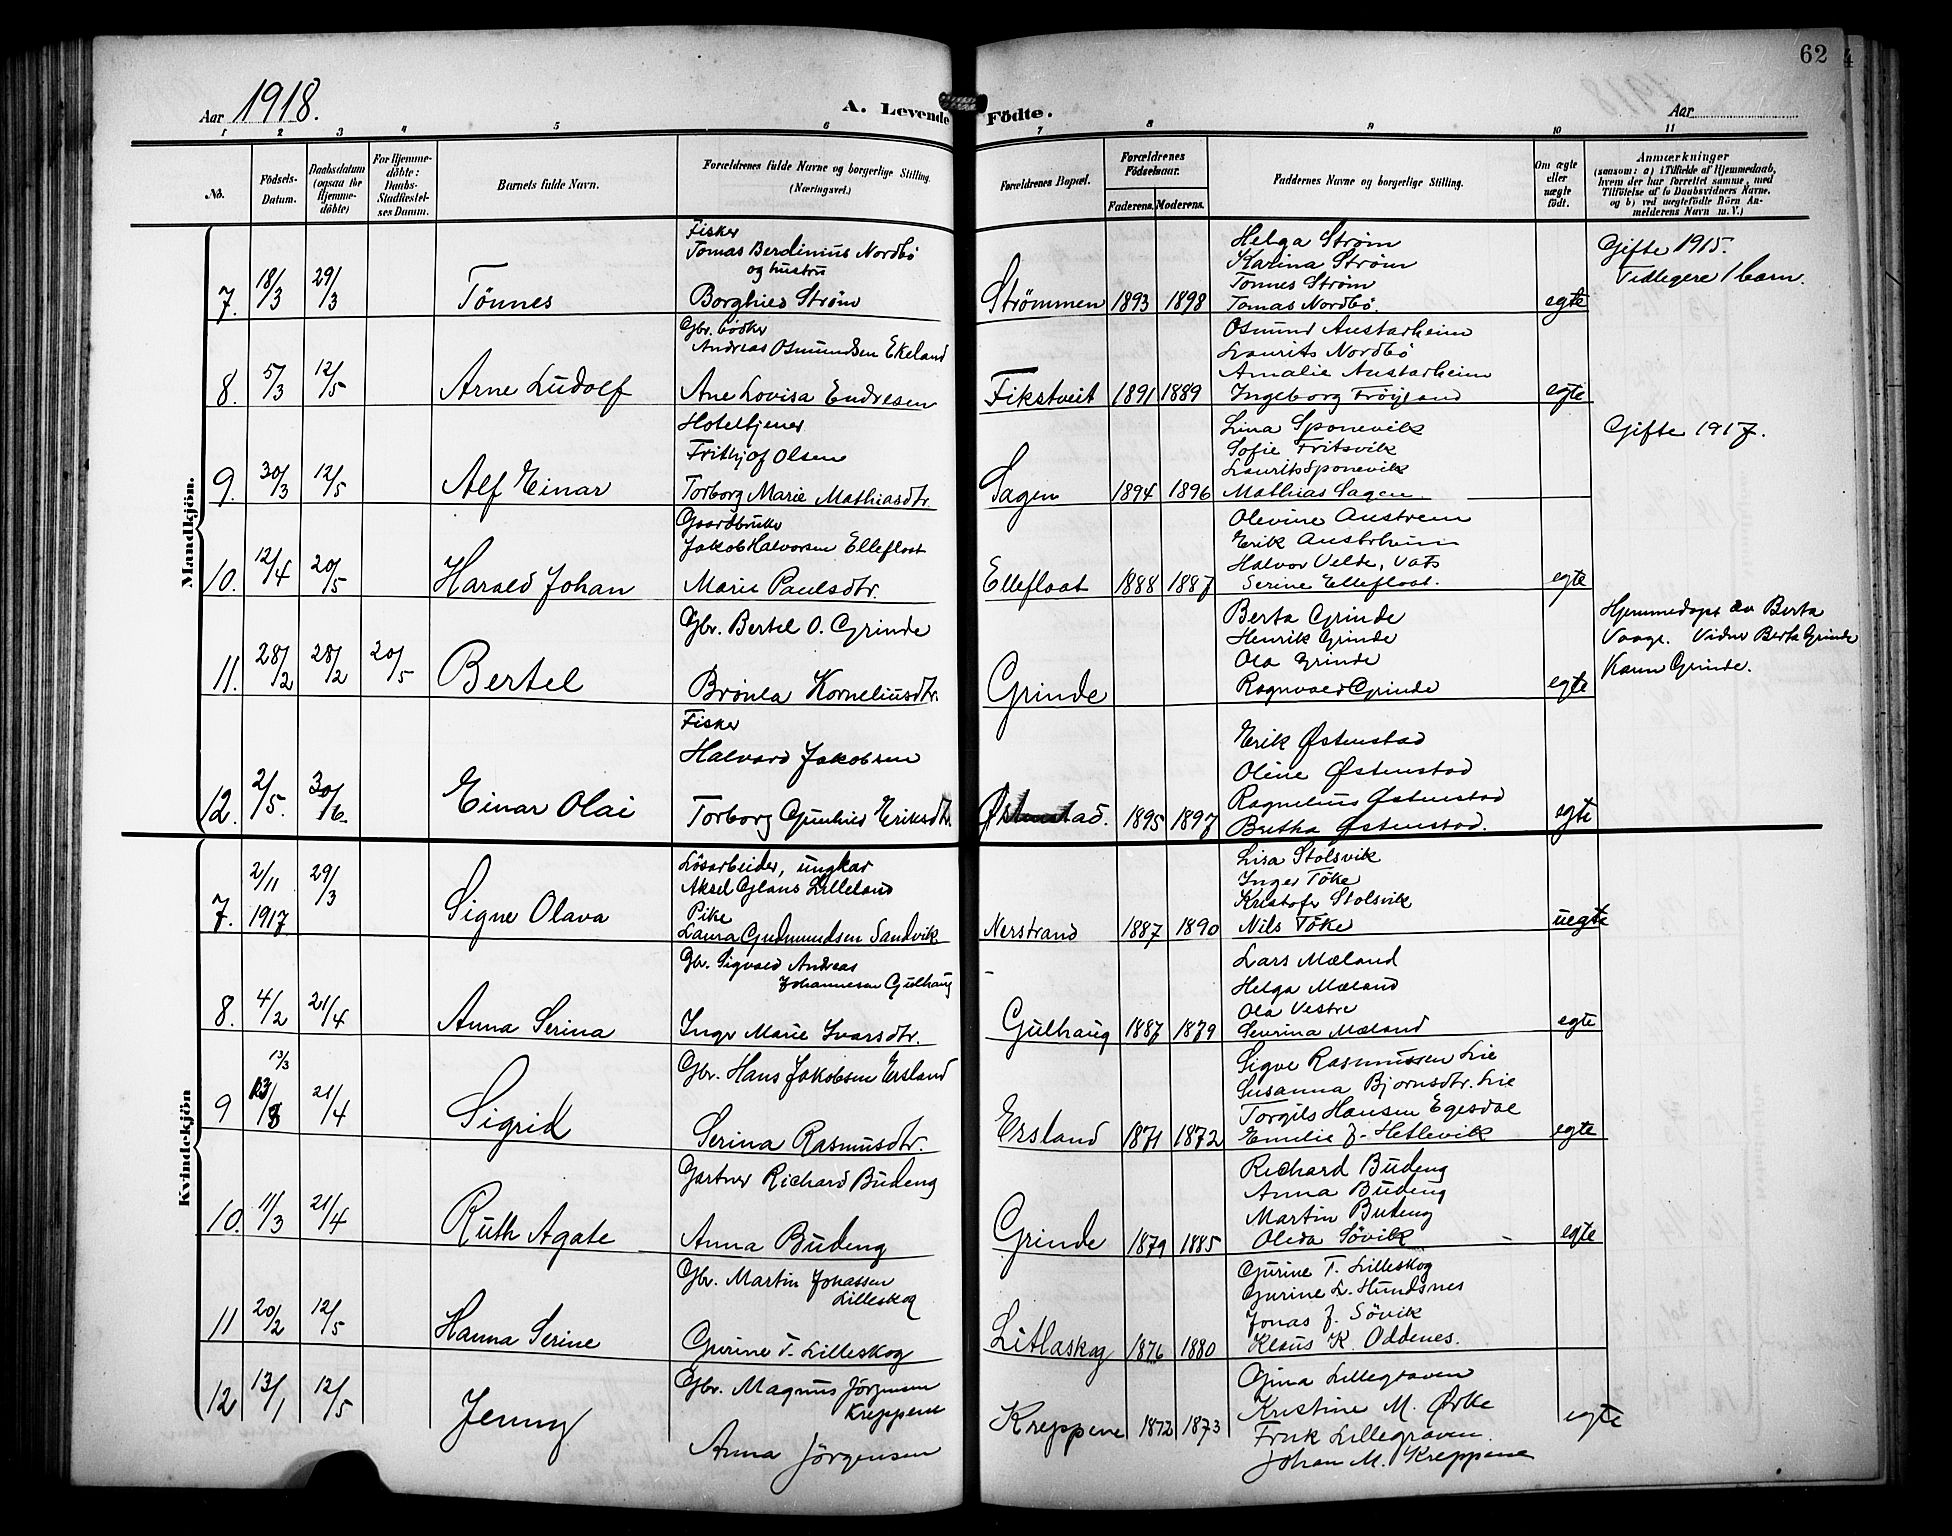 62
4
Aar 1918.
A. Levende Fødte.
Aar
1 2 3 4 5 6 7 8 9 10 11
No.
Fødsels-Datum.
Daabsdatum (ogsaa for Hjemme-døbte)
For Hjemme-døbte: Daabs-Stadfæstel-ses Datum.
Barnets fulde Navn.
Forældrenes fulde Navne og borgerlige Stilling. (Næringsvei.)
Forældrenes Bopæl.
Forældrenes Fødselsaar.
Faderens. Moderens.
Faddernes Navne og borgerlige Stilling.
Om ægte eller uægte født.
Anmærkninger
(saasom: a) i Tilfælde af Hjemmedaab,
hvem der har forrettet samme, med
Tilføielse af to Daabsvidners Navne,
og b) ved uægtefødte Børn An-
melderens Navn m. V.)
Mandkjøn.
7. 18/3 29/3 Tönnes
Fisker
Tomas Berdinius Nordbö
og hustru
Borghild Ström
Strömmen 1893 1898
Helga Strøm
Karina Strøm
Tönnes Strøm
Tomas Nordbö.
egte
Gifte 1915.
Tidligere 1 barn.
8. 5/3 12/5 Arne Ludolf
Gbr. bödker
Andreas Osmundsen Ekeland
Ane Lovisa Endresen
Fikstveit 1891 1889
Osmund Austarheim
Laurits Nordbö
Amalie Austarheim
Ingeborg Tröyland
egte
9. 30/3 12/5 Alf Einar
Hoteltjener
Frithjof Olsen
Torborg Marie Mathiasdtr.
Sagen 1894 1896
Lina Sponevik
Sofie Fritsvik
Laurits Sponevik
Mathias Sagen
Gifte 1917.
10. 12/4 20/5 Harald Johan
Gaardbruker
Jakob Halvorsen Ellefloat
Marie Paulsdtr.
Ellefloat 1888 1887
Olevine Austrem
Erik Austrheim
Halvor Velde, Vats
Serine Ellefloat.
egte
11. 28/2 28/2 20/5 Bertel
Gbr. Bertel O. Grinde
Brönla Korneliusdtr.
Grinde
Berta Grinde
Henrik Grinde
Ola Grinde
Ragnvald Grinde
egte
Hjemmedøpt av Berta
Vaage. Vidner Berta Grinde
Karn Grinde.
12. 2/5. 30/6. Einar Olai
Fisker
Halvard Jakobsen
Torborg Gunhild Eriksdtr.
Østenstad. 1895 1897
Erik Østenstad
Oline Østenstad
Ragnelius Østenstad
Bertha Østenstad.
egte
Kvindekjön
7. 2/11 1917 29/3 Signe Olava
Lösarbeider, ungkar
Aksel Glaus Lilleland
Pike
Laura Gudmundsen Sandvik
Nerstrand 1887 1890
Lisa Stolsvik
Inger Töke
Kristofr Stolsvik
Nils Töke
uegte
8. 4/2 21/4 Anna Serina
Gbr. Sigvald Andreas
Johannesen Gulhaug
Inger Marie Ivarsdtr.
Gulhaug 1887 1879
Lars Mæland
Helga Mæland
Ola Vestre
Severina Mæland
egte
9 13/3 21/4 Sigrid
Gbr. Hans Jakobsen Ersland
Serina Rasmusdtr.
Ersland 1871 1872
Sigve Rasmussen Lie
Susanna Bjornsdtr. Lie
Torgils Hansen Egesdal
Emilie J. Hetlevik
egte
10. 11/3 21/4 Ruth Agate
Gartner Richard Budeng
Anna Budeng
Grinde 1879 1885
Richard Budeng
Anna Budeng
Martin Budeng
Oleda Søvik
egte
11 20/2 12/5 Hanna Serine
Gbr. Martin Johassen
Lilleskog
Gurine T. Lilleskog
Litlaskog 1876 1880
Gurine T. Lilleskog
Gurine L. Hundsnes
Jonas J. Sövik
Klaus K. Oddenes.
12 13/1 12/5 Jenny
Gbr. Magnus Jörgensen
Kreppene
Anna Jörgensen
Kreppene 1872 1873
Gina Lillegraven
Kristine M. Ørke
Lillegraven.
Johan M. Kreppene
egte